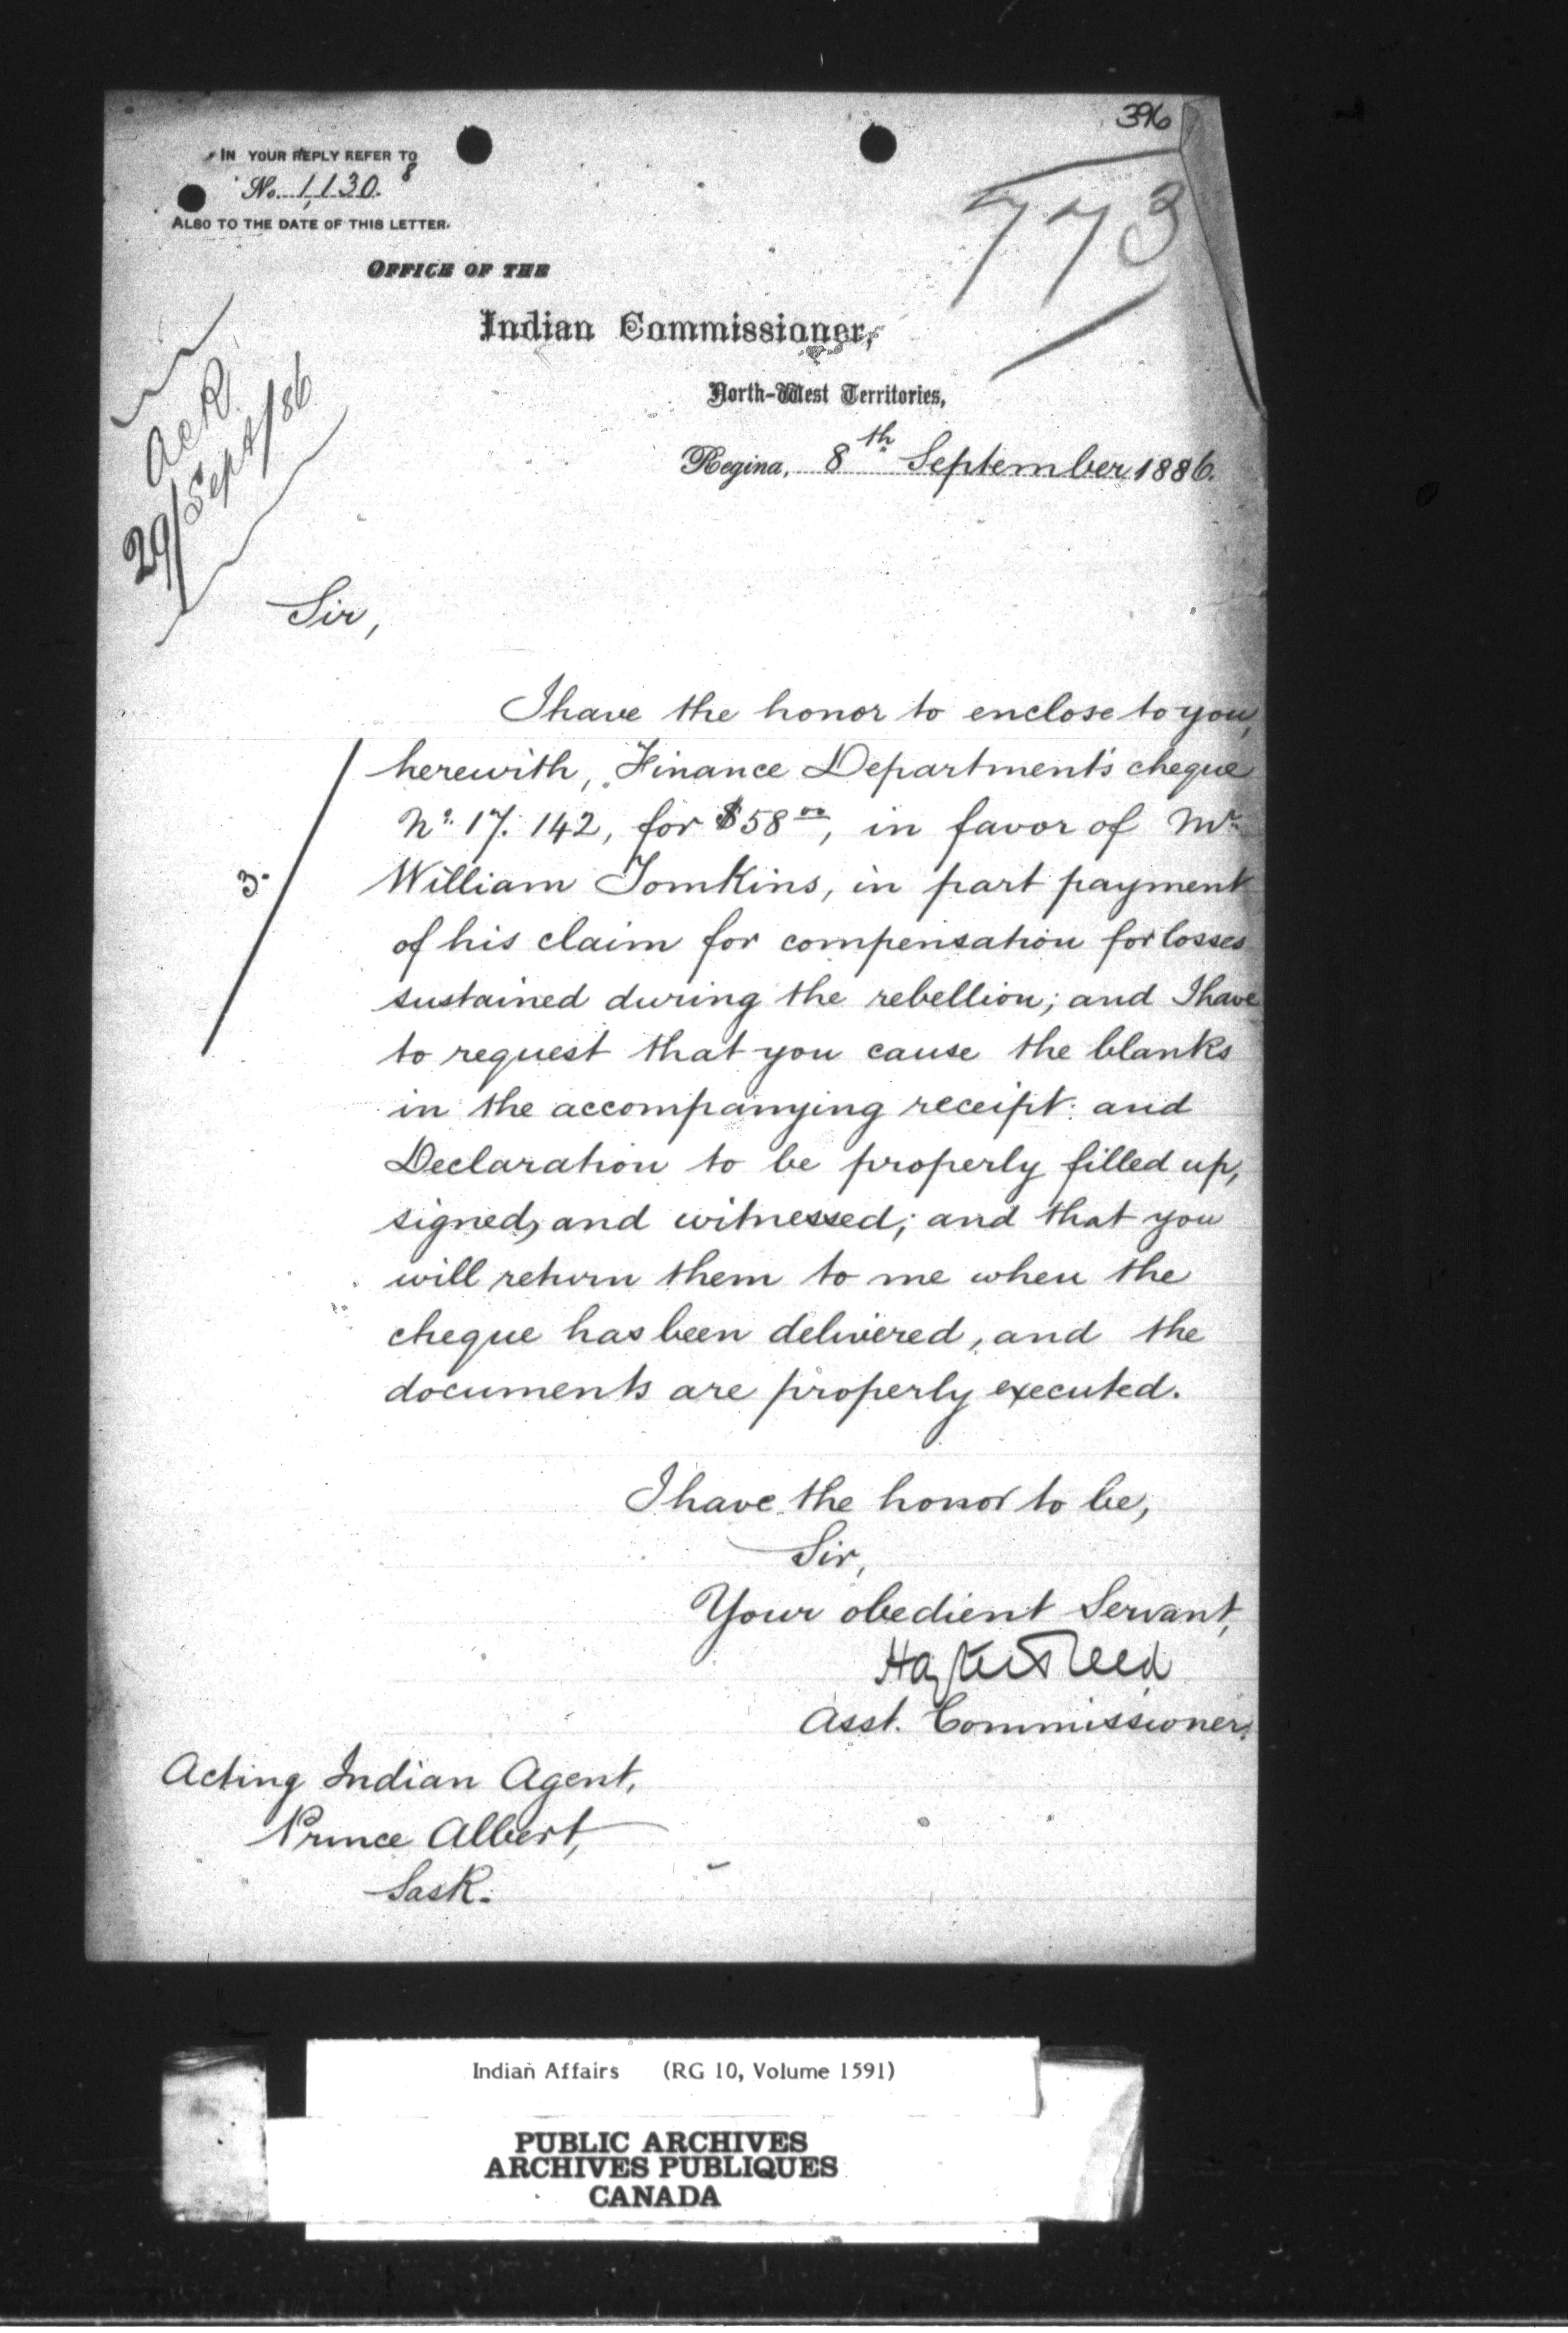 396
IN YOUR REPLY REFER TO
No. 1,130. 8
ALSO TO THE DATE OF THIS LETTER.
773
OFFICE OF THE
Indian Commissioner,
North-West Territories,
Regina, 8th September 1886.
Ack
29/Sept/86
Sir,
I have the honor to enclose to you,
herewith, Finance Department's cheque
No. 17.142, for $58 00, in favor of Mr
3.
William Tomkins, in part payment
of his claim for compensation for losses
sustained during the rebellion; and I have
to request that you cause the blanks
in the accompanying receipt and
Declaration to be properly filled up,
signed, and witnessed; and that you
will return them to me when the
cheque has been delivered, and the
documents are properly executed.
I have the honor to be,
Sir,
Your obedient Servant,
Hayter Reed
Asst. Commissioner.
Acting Indian Agent,
Prince Albert,
Sask.
Indian Affairs (RG 10, Volume 1591)
PUBLIC ARCHIVES
ARCHIVES PUBLIQUES
CANADA